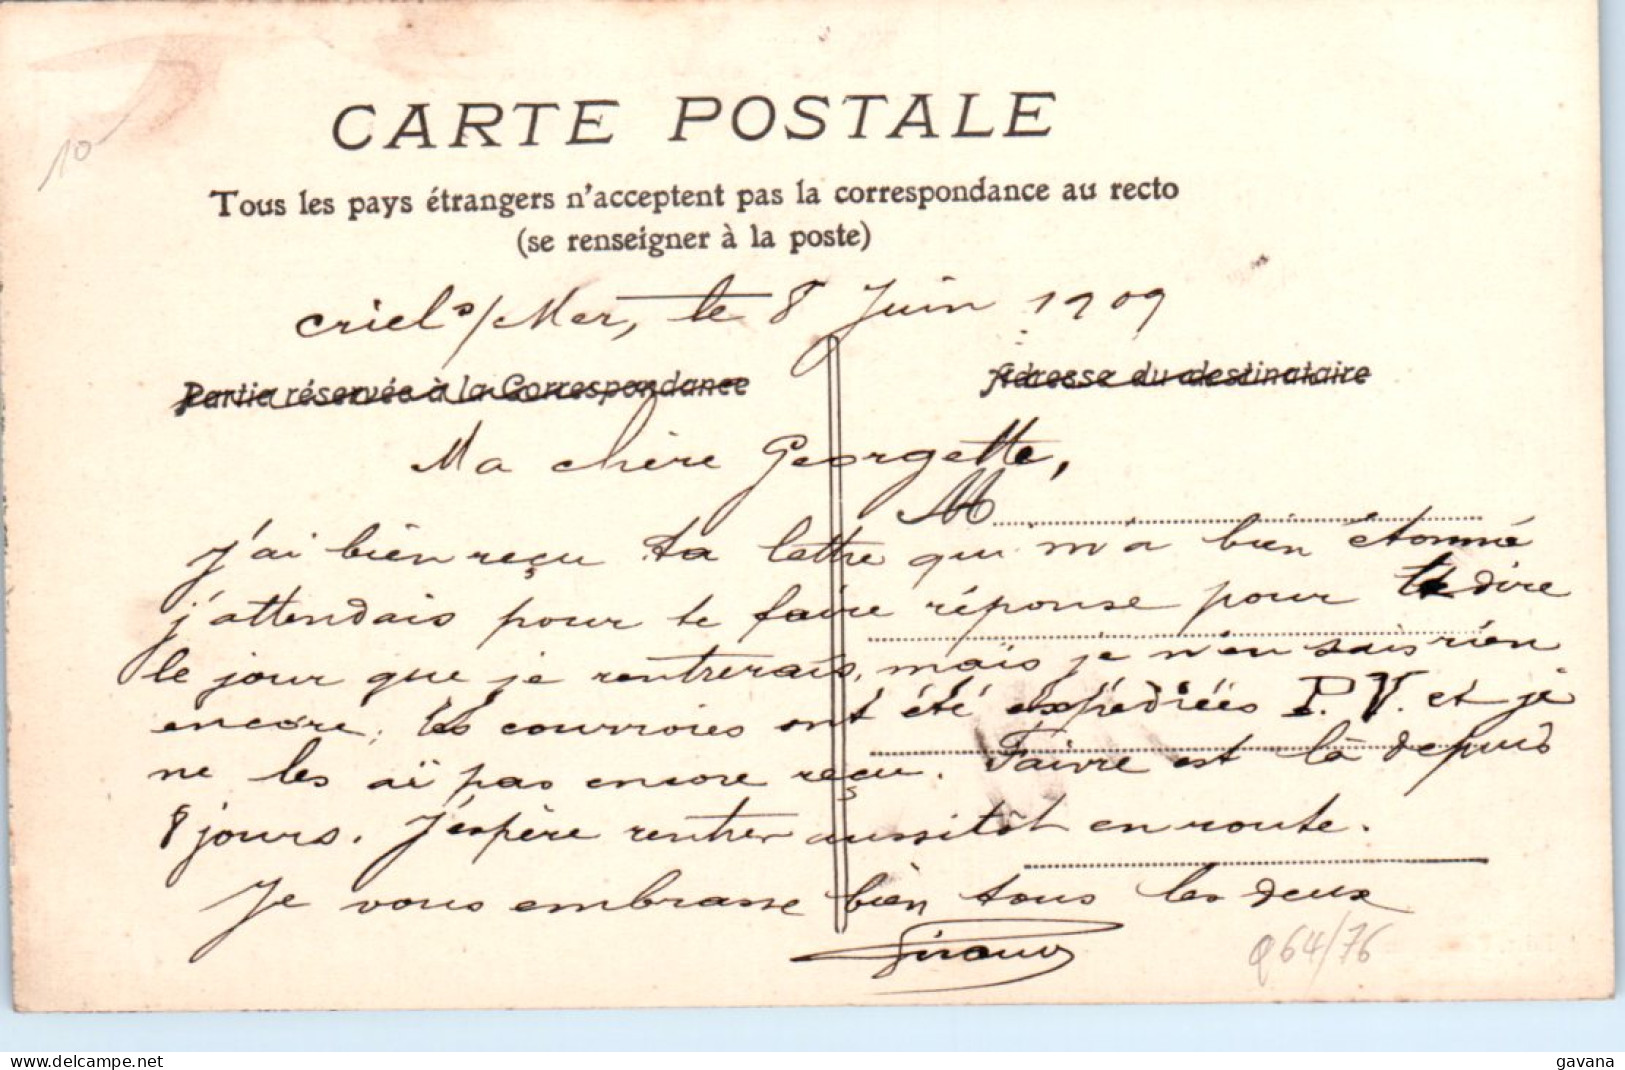 10
CARTE POSTALE
Tous les pays étrangers n'acceptent pas la correspondance au recto
(se renseigner à la poste)
Criel s/Mer, le 8 Juin 1909
Partie réservée à la Correspondance
Adresse du destinataire
Ma chère Georgette,
M
J'ai bien reçu ta lettre qui m'a bien étonné
j'attendais pour te faire réponse pour te dire
le jour que je rentrerais, mais je n'en sais rien
encore; les courroies ont été expédiées P.V. et je
ne les ai pas encore reçu. Faivre est là depuis
8 jours. J'espère rentrer aussitôt en route.
Je vous embrasse bien tous les deux
Q64/76
delcampe.net
gavana